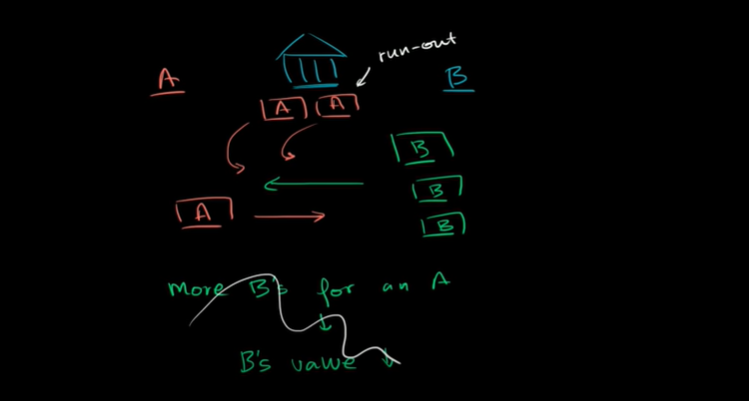 run-out
A B
A A
B
B
A B
More B's for an A
↓
B's value ↓